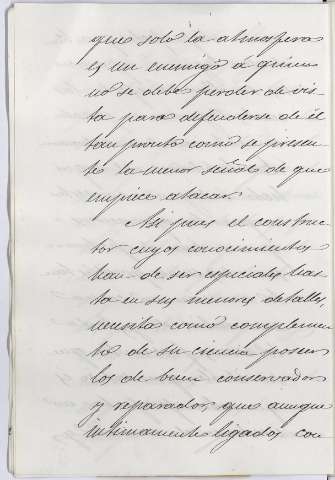 que solo la atmosfera
es un enemigo a quien
no se debe perder de vis-
ta para defenderse de él
tan pronto como se presen-
te la menor señal de que
empiece atacar.
Asi pues el construc-
tor cuyos conocimientos
han de ser especiales has-
ta en sus menores detalles,
necesita como complemen-
to de su ciencia poseer
los de buen conservador
y reparador, que aunque
intimamente ligados con